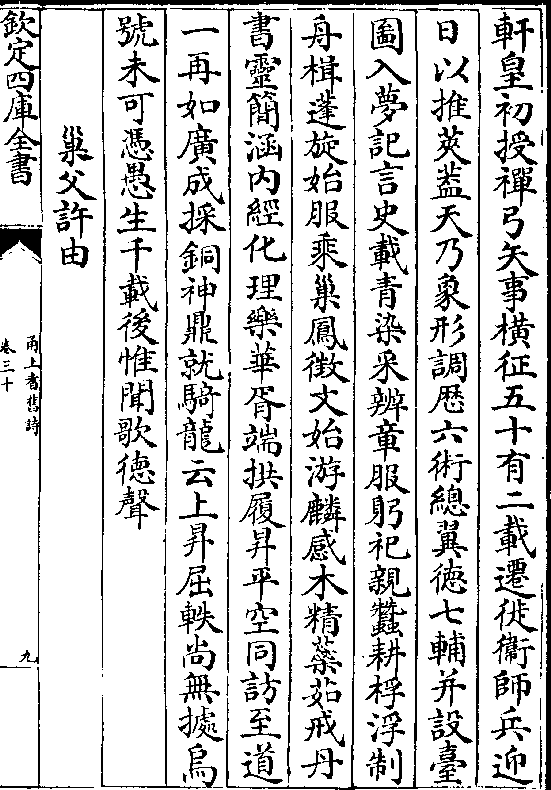 軒皇初授禪弓矢事橫征五十有二載遷徙衞師兵迎
日以推莢葢天乃象形調厯六術總翼徳七輔并設臺
圖入夢記言史載青染采辨章服躬祀親蠶耕桴浮制
舟楫蓬旋始服乘巢鳳徴文始游麟感木精蘂茹戒丹
書靈簡涵内經化理樂華胥端拱履昇平空同訪至道
一再如廣成採銅神鼎就騎龍云上昇屈軼尚無據烏
號未可憑愚生千載後惟聞歌徳聲
巢父許由
欽定四庫全書
甬上耆舊詩
卷三十
九